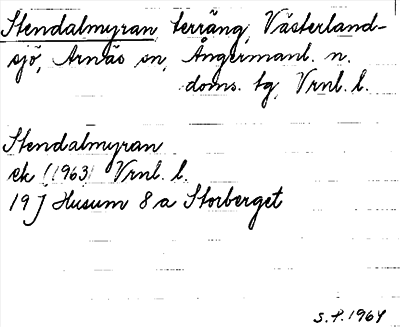 Stendalmyran terräng, Västerland-
sjö, Arnäs sn, Ångermanl. n.
doms. tg, Vrnl. l.
Stendalmyran
ek (1963) Vrnl. l.
19 J Husum 8 a Storberget
S.P. 1964